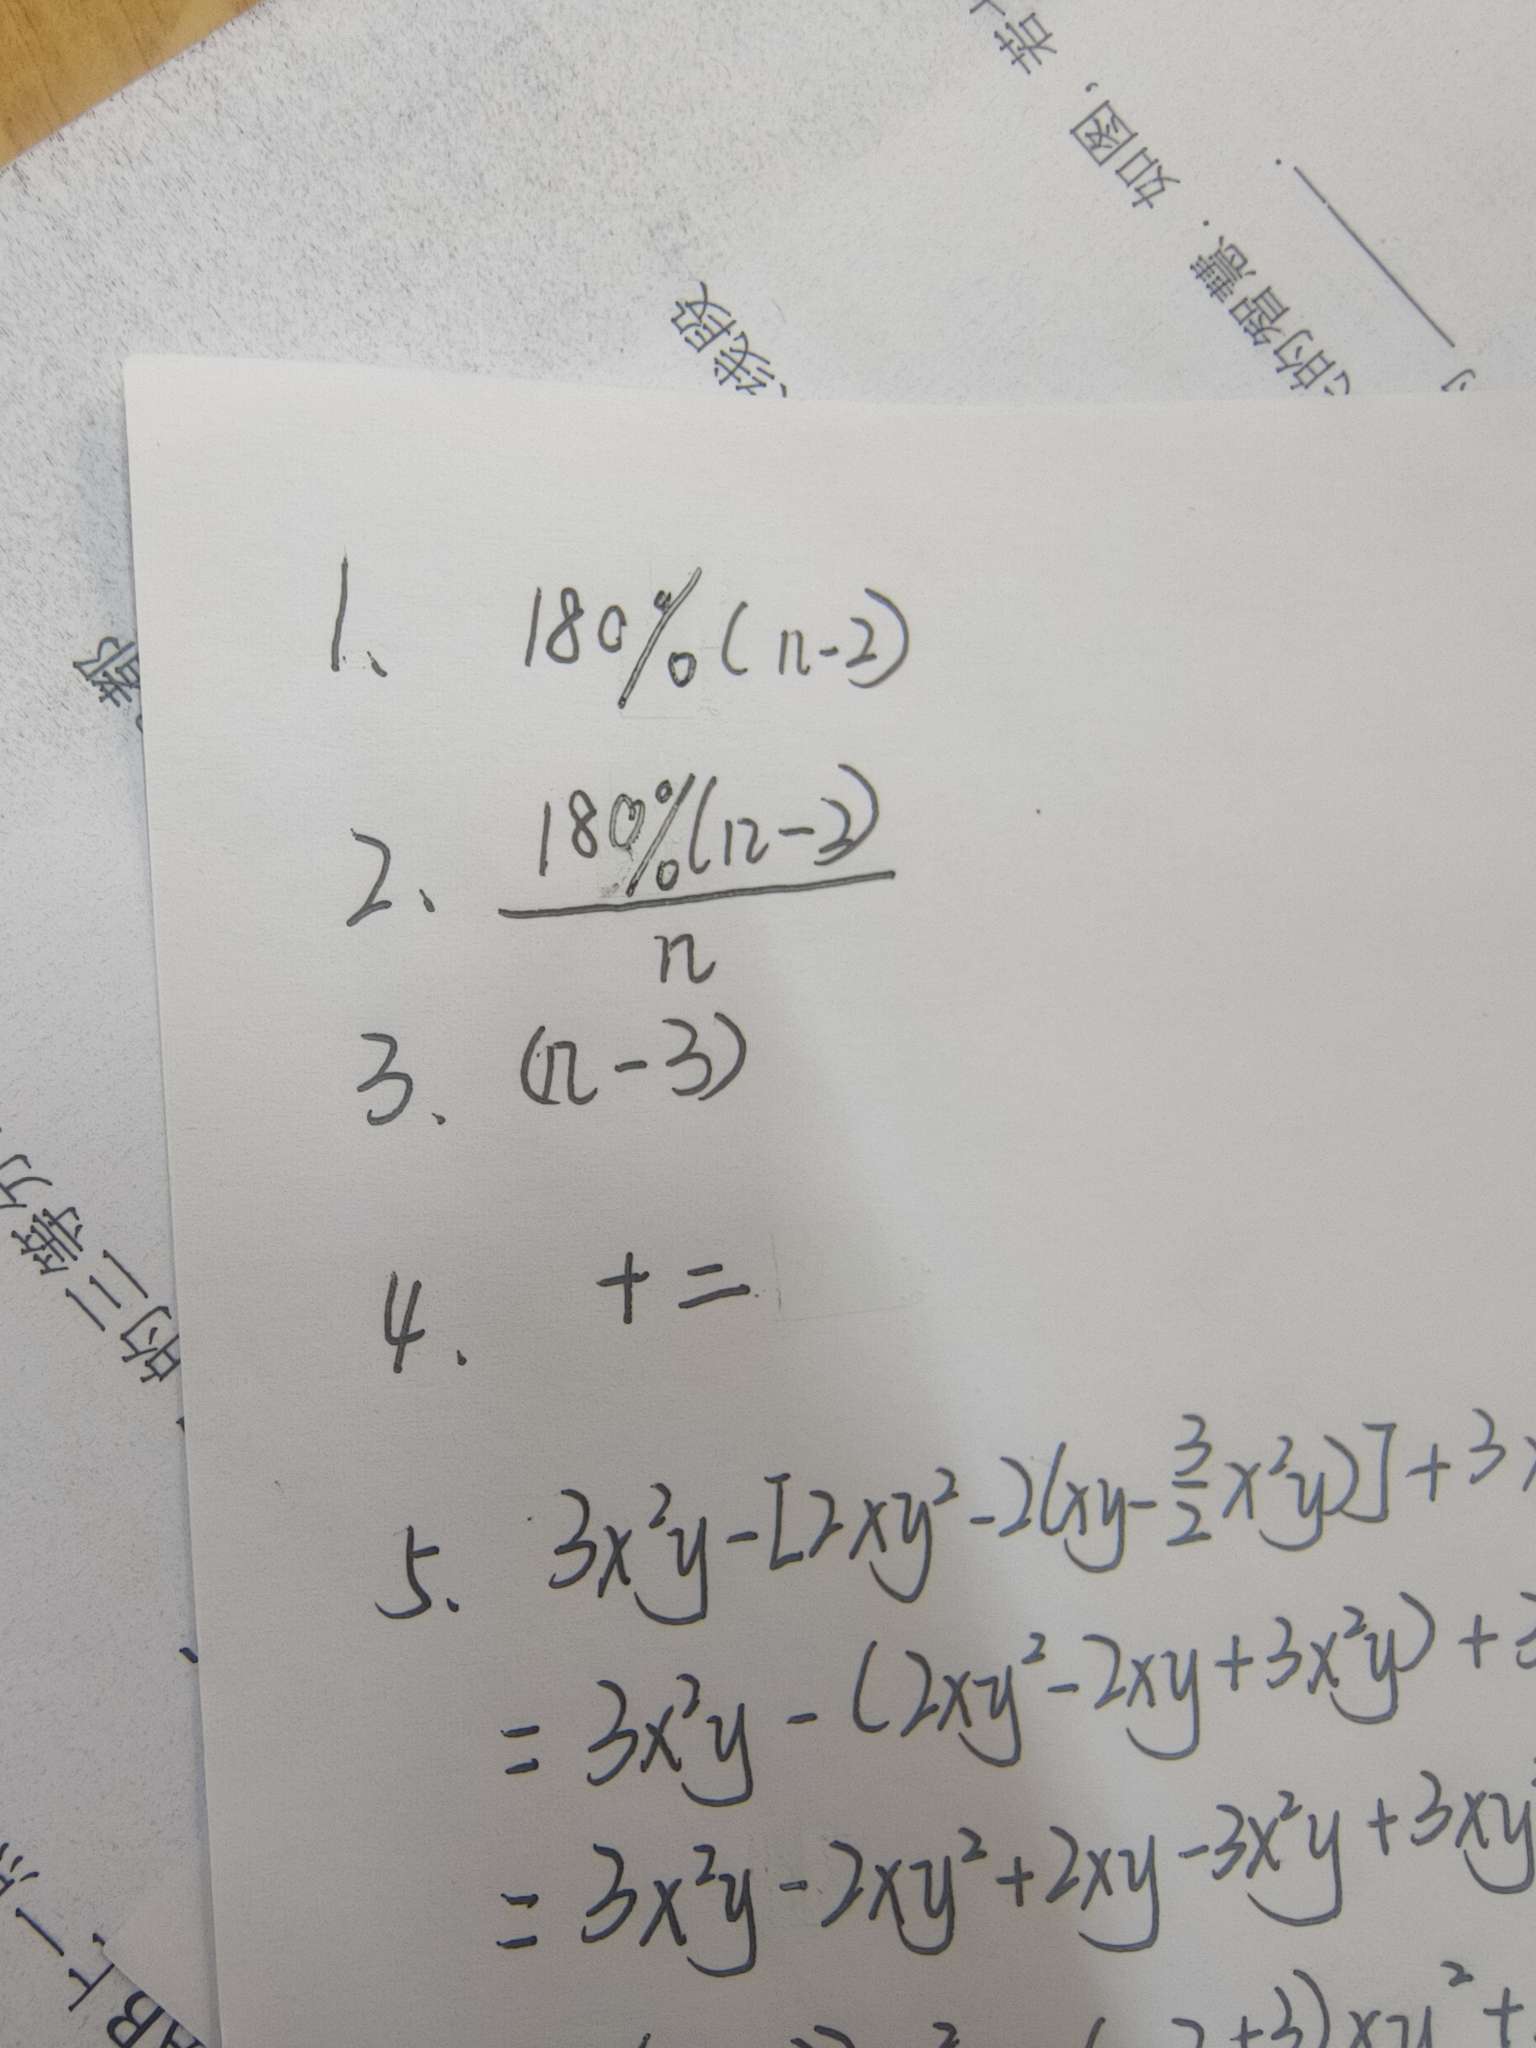 若
如图,
的智慧.
线段
都
的三等分
AB上一点
1、 180%(n-2)
2、 180%(n-3)
n
3、 (n-3)
4、 + =
5、 3x²y-[2xy²-2(xy-3/2x²y)]+3
= 3x²y-(2xy²-2xy+3x²y)+3
= 3x²y-2xy²+2xy-3x²y+3xy²
+3)xy²+